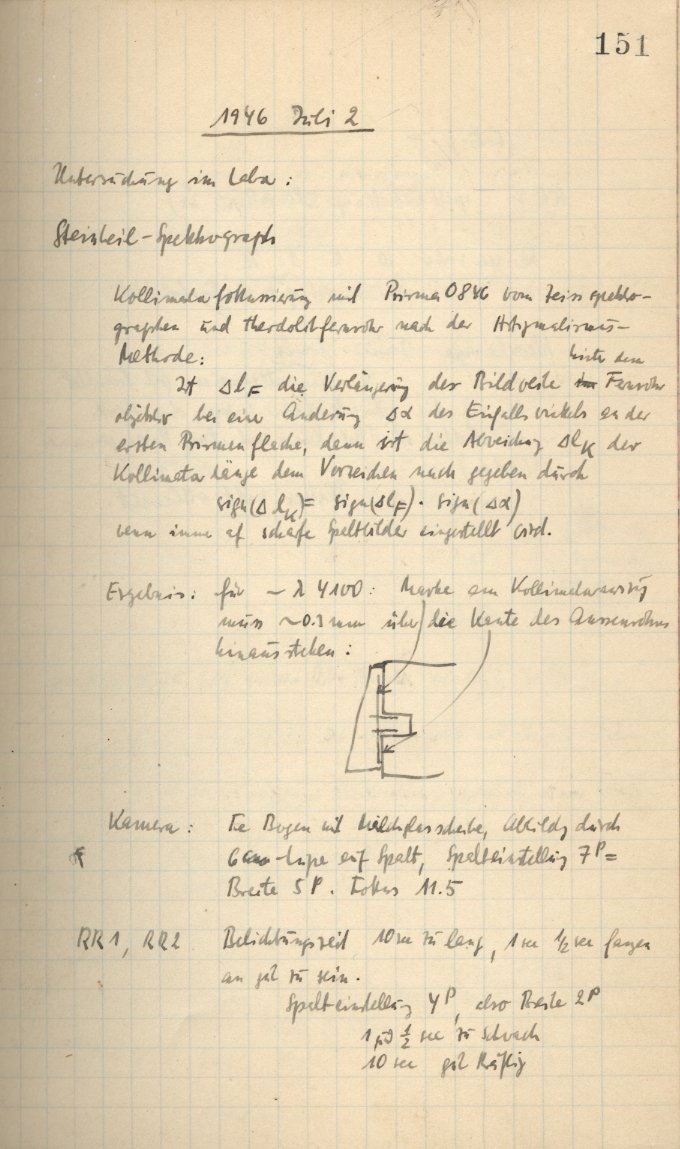 151
1946 Juli 2
Untersuchung im Labor:
Steinheil-Spektrograph
Kollimatorfokussierung mit Prisma 0846 vom Zeiss spektro-
graphen und Theodolitfernrohr nach der Astigmatismus-
Methode:
hinter dem
Ist Δl_F die Verlängerung der Bildweite Fernrohr
objektiv bei einer Änderung Δα des Einfallswinkels an der
ersten Prismenfläche, dann ist die Abweichung Δl_K der
Kollimatorlänge dem Vorzeichen nach gegeben durch
sign(Δl_K) = sign(Δl_F) · sign(Δα)
wenn immer auf scharfe Spaltbilder eingestellt wird.
Ergebnis: für ~ λ 4100: Marke am Kollimatorauszug
muss ~0.3 mm über die Kante des Aussenrohrs
hinausstehen:
Kamera: Fe Bogen mit Milchglasscheibe, Abbildg durch
6 cm-Lupe auf Spalt, Spalteinstellung 7ᵖ =
Breite 5ᵖ. Fokus 11.5
RR1, RR2 Belichtungszeit 10 sec zu lang, 1 sec ½ sec fangen
an gut zu sein.
Spalteinstellung 4ᵖ, also Breite 2ᵖ
1 und ½ sec zu schwach
10 sec gut kräftig